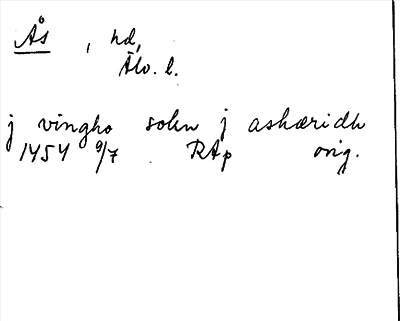 Ås, hd,
Älv. l.
j vingho sokn j askæridh
1454 9/7 RAp orig.